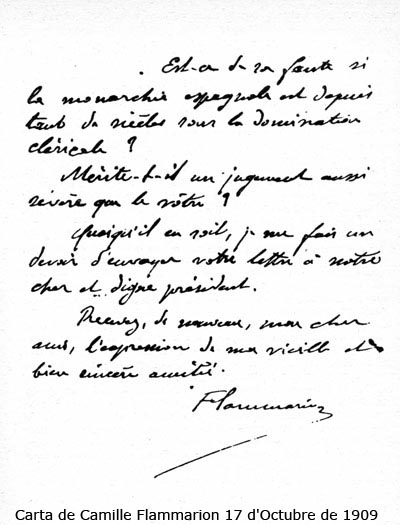 Est-ce de sa faute si
la monarchie espagnole est depuis
tant de siècles sous la domination
cléricale ?
Mérite-t-il un jugement aussi
sévère que le vôtre ?
Quoiqu'il en soit, je me fais un
devoir d'envoyer votre lettre à notre
cher et digne président.
Recevez, de nouveau, mon cher
ami, l'expression de ma vieille et
bien sincère amitié.
Flammarion
Carta de Camille Flammarion 17 d'Octubre de 1909